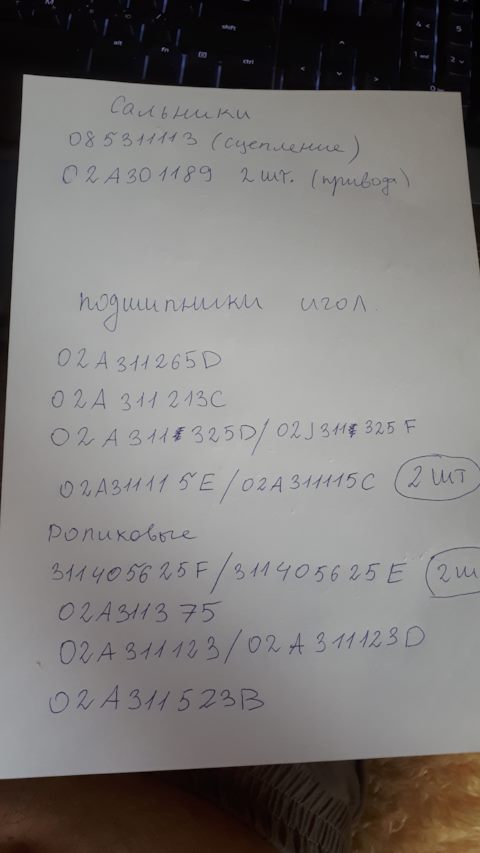 Сальники
085311113 (сцепление)
02А301189 2 шт. (привода)
подшипники игол.
02А311265D
02А 311 213С
02А 311 325D/02J311 325 F
02А311115Е/02А311115С 2 шт
Роликовые
311405625F/311405625Е 2 ш
02А311375
02А311123/02А311123D
02А311523В